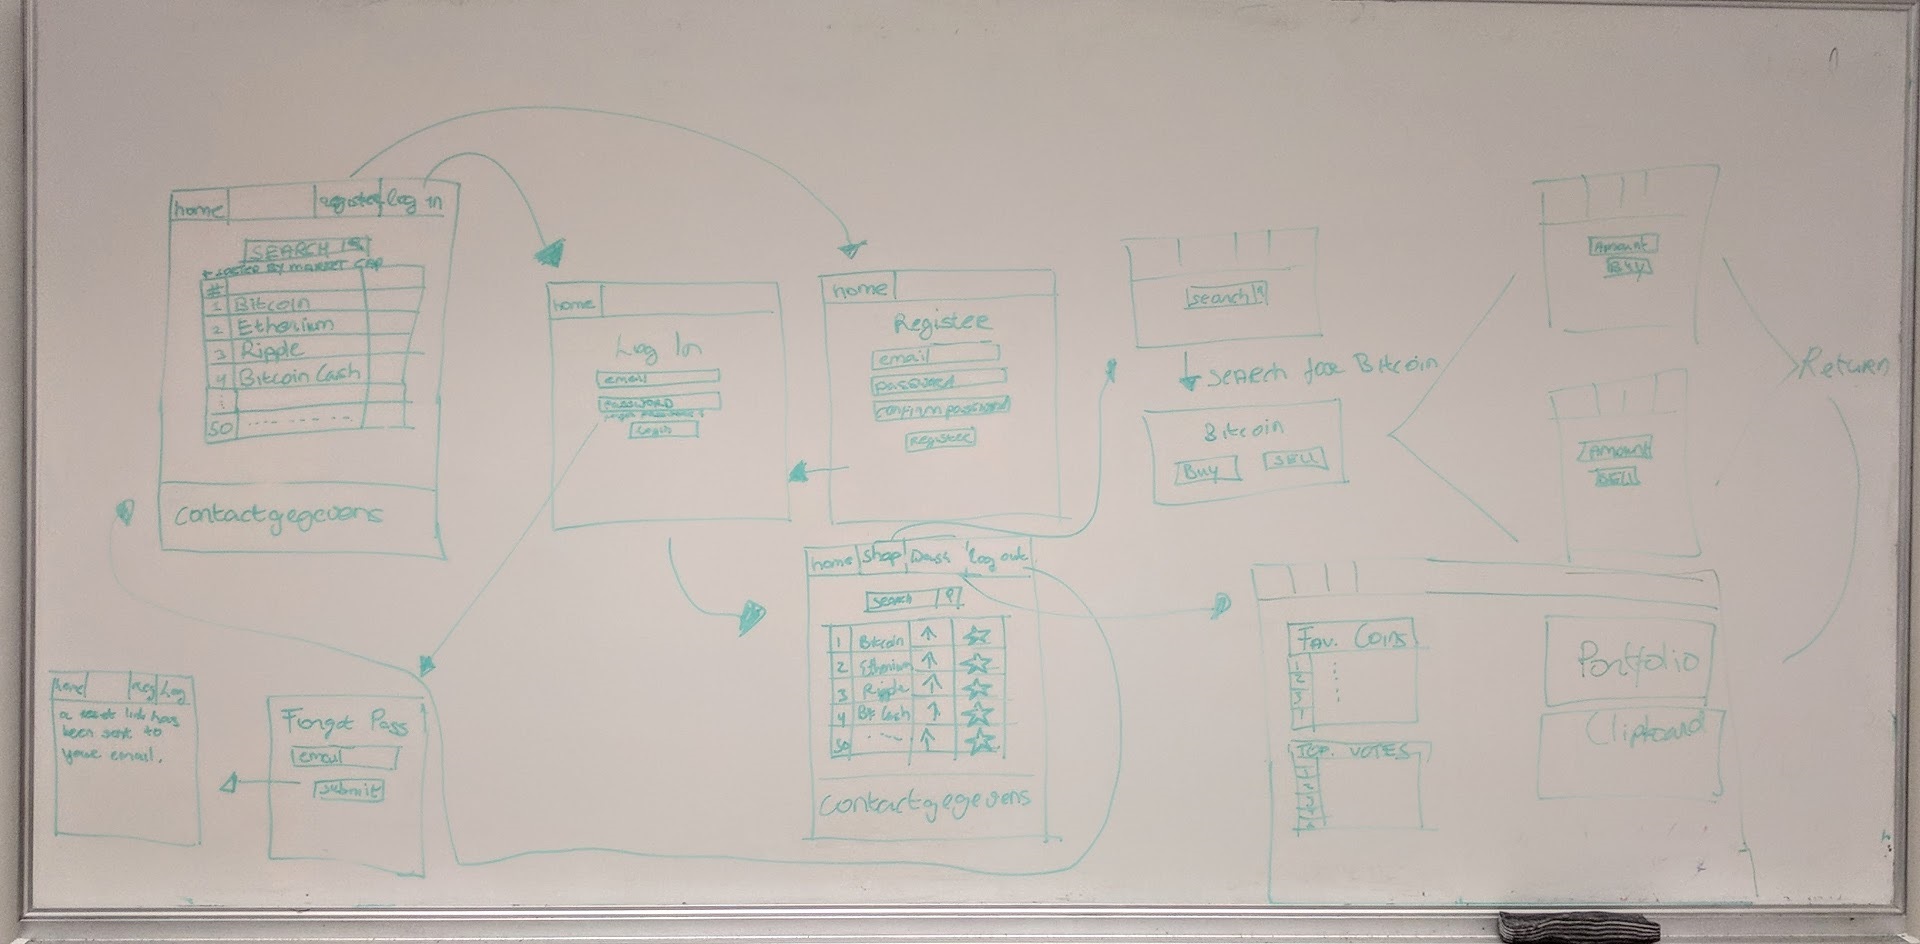 home register log in
SEARCH
LISTED BY MARKET CAP
#
1 Bitcoin
2 Etherium
3 Ripple
4 Bitcoin Cash
50 .... ....
contactgegevens
home
Log In
email
PASSWORD
Login
home
Register
email
password
confirm password
Register
search
SEARCH for Bitcoin
Bitcoin
Buy SELL
Amount
BUY
Amount
SELL
Return
home shop Dash log out
search
1 Bitcoin
2 Etherium
3 Ripple
4 Bit Cash
50
contactgegevens
Fav. Coins
1
2
3
TOP. VOTES
Portfolio
Clipboard
Forgot Pass
email
submit
home Reg Log
a reset link has
been sent to
your email.